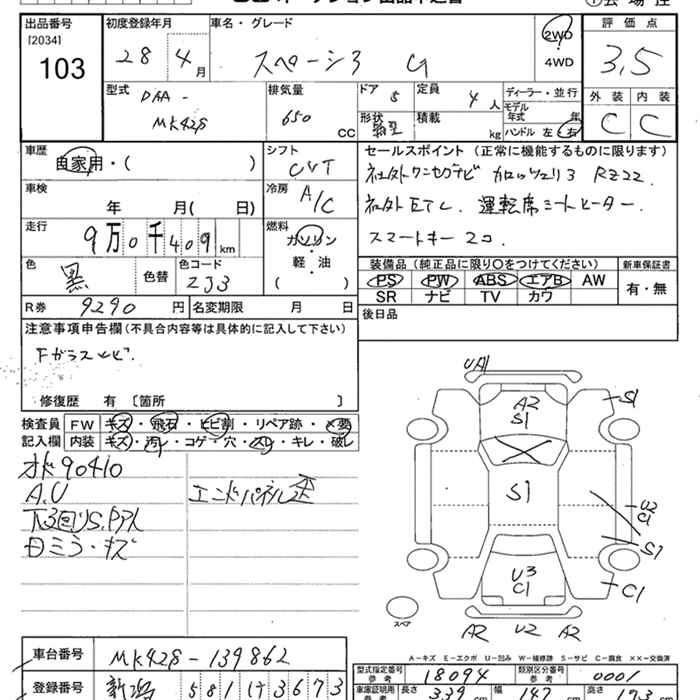 出品番号
[2034]
103
初度登録年月
28年 4月
車名・グレード
スペーシア G
2WD
4WD
評価点
3.5
型式
DAA-
MK42S
排気量
650 CC
ドア 5
定員 4人
形状
積載 kg
ディーラー・並行
モデル年式 年
ハンドル 左・右
外装 内装
C C
車歴
自家用・( )
シフト
CVT
セールスポイント(正常に機能するものに限ります)
社外ワンセグナビ カロッツェリア RZ22.
社外ETC. 運転席シートヒーター.
スマートキー2コ.
車検
年 月( 日)
冷房
A/C
走行
9万0千409km
燃料
ガソリン
軽・油
( )
色
黒
色替
色コード
ZJ3
装備品(純正品に限り○をつけてください)
PS PW ABS エアB AW
SR ナビ TV カワ
新車保証書
有・無
R券 9290円
名変期限 月 日
後日品
注意事項申告欄(不具合内容等は具体的に記入して下さい)
Fガラスヒビ.
修復歴 有 〔箇所 〕
検査員記入欄
FW キズ・飛石・ヒビ割・リペア跡・×要
内装 キズ・汚レ・コゲ・穴・スレ・キレ・破レ
90410
A.U
エンドパネル歪
ミラーキズ
UA1
A2
S1
S1
S1
U2
C1
S1
U3
C1
C1
A2 U2 A2
スペア
A-キズ E-エクボ U-凹み W-補修跡 S-サビ C-腐食 ××-交換済
車台番号 MK42S-139862
登録番号 新潟 581 け 3673
型式指定番号 参考 18094
類別区分番号 参考 0001
車庫証明用 参考
長さ 339 cm
幅 147 cm